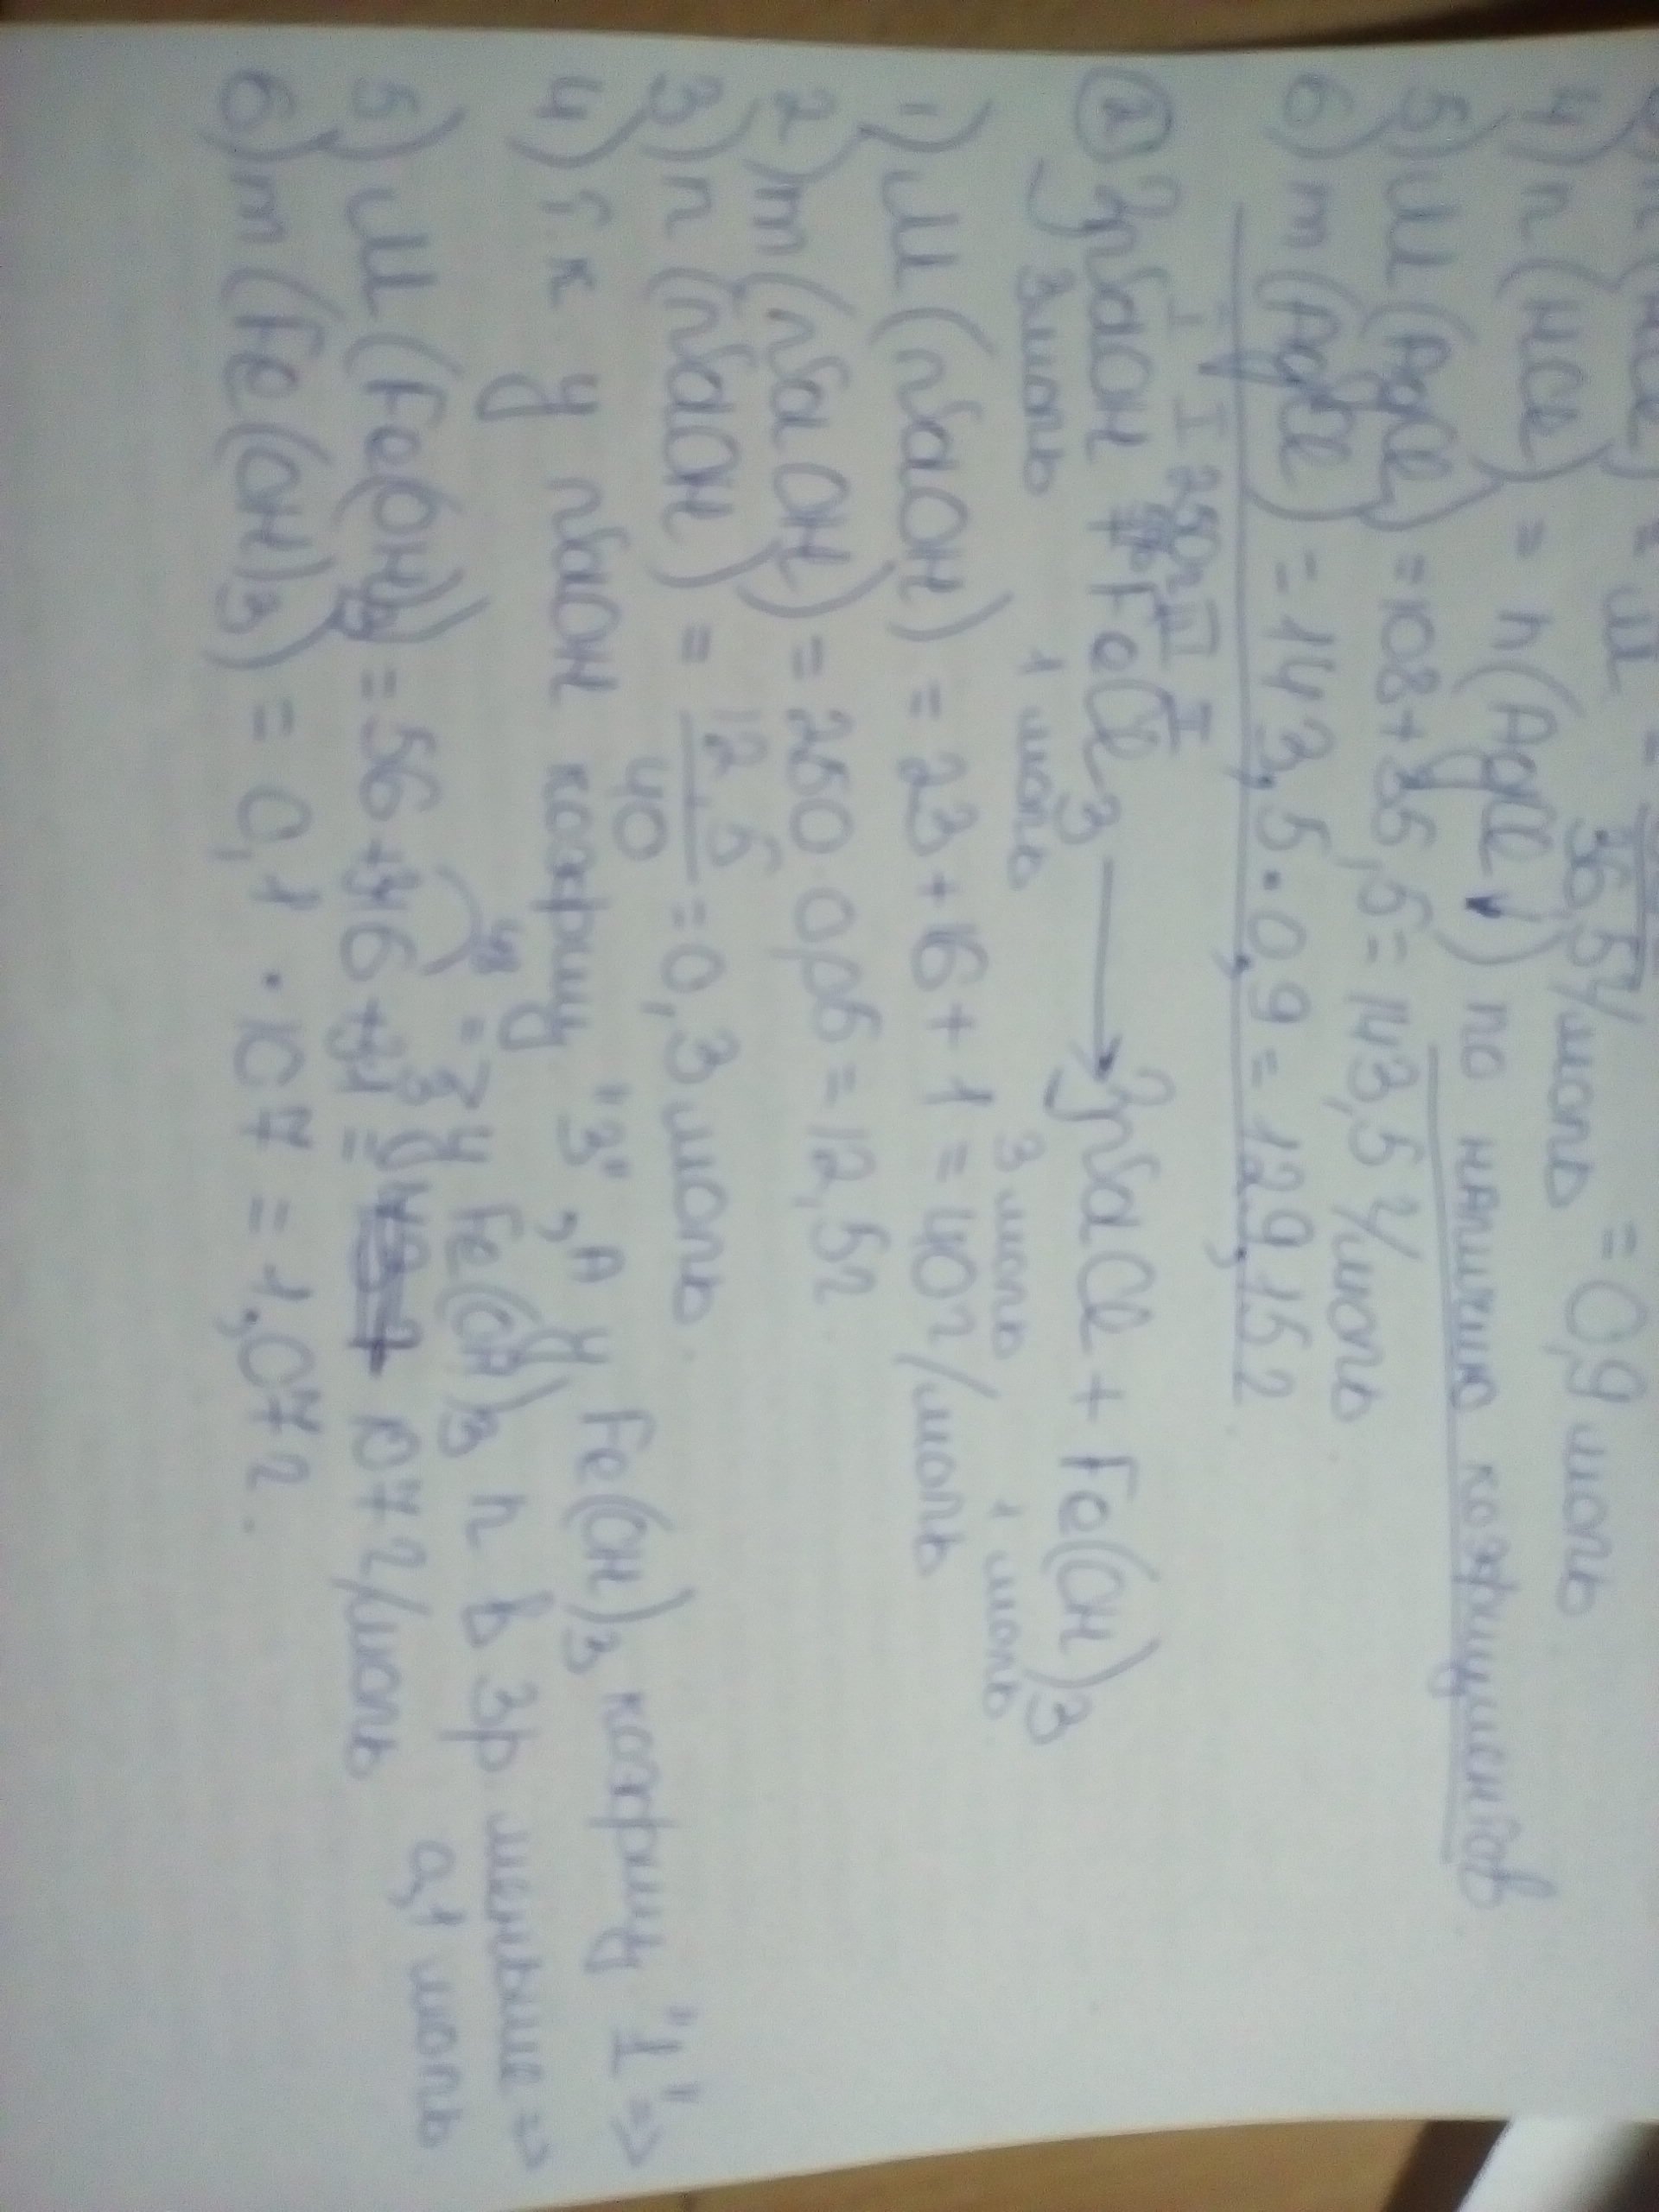 = M = 36,5г/моль = 0,9 моль
4) n(HCl) = n(AgCl↓) по наличию коэфициентов
5) M(AgCl) = 108+35,5 = 143,5 г/моль
6) m(AgCl) = 143,5 · 0,9 = 129,15г
I I 250г III I
② 3NaOH + FeCl3 → 3NaCl + Fe(OH)3
3моль 1 моль 3 моль 1 моль
1) M(NaOH) = 23+16+1 = 40г/моль
2) m(NaOH) = 250·0,05 = 12,5г
3) n(NaOH) = 12,5/40 = 0,3 моль.
4) т.к у NaOH коэфиц "3", а у Fe(OH)3 коэфиц "1" =>
=> у Fe(OH)3 n в 3р меньше =>
0,1 моль
5) M(Fe(OH)3) = 56+ 107 г/моль
6) m(Fe(OH)3) = 0,1 · 107 = 1,07г.